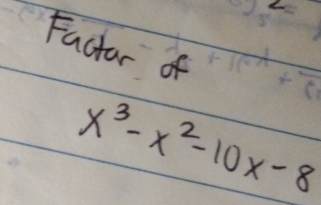 Factor of
x³-x²-10x-8